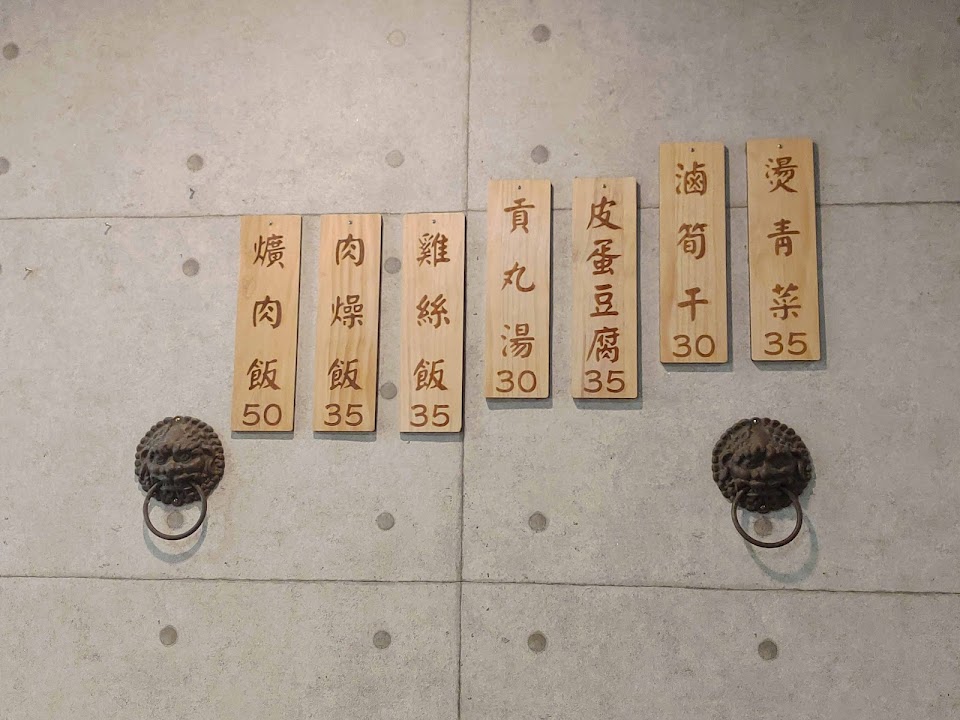 爌肉飯50
肉燥飯35
雞絲飯35
貢丸湯30
皮蛋豆腐35
滷筍干30
燙青菜35